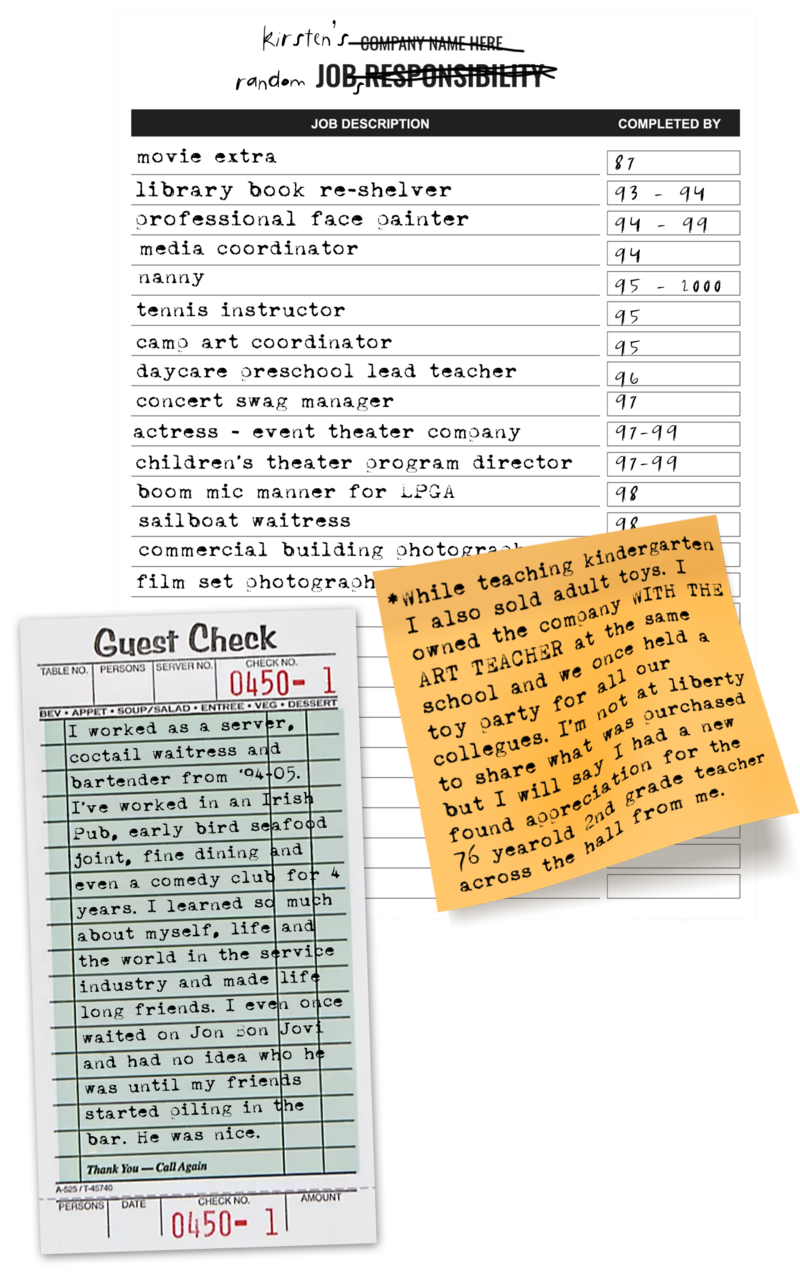 kirsten's COMPANY NAME HERE
random JOBs RESPONSIBILITY
JOB DESCRIPTION COMPLETED BY
movie extra 87
library book re-shelver 93 - 94
professional face painter 94 - 99
media coordinator 94
nanny 95 - 2000
tennis instructor 95
camp art coordinator 95
daycare preschool lead teacher 96
concert swag manager 97
actress - event theater company 97-99
children's theater program director 97-99
boom mic manner for LPGA 98
sailboat waitress 98
commercial building photograph
film set photograph
*While teaching kindergarten
I also sold adult toys. I
owned the company WITH THE
ART TEACHER at the same
school and we once held a
toy party for all our
collegues. I'm not at liberty
to share what was purchased
but I will say I had a new
found appreciation for the
76 yearold 2nd grade teacher
across the hall from me.
Guest Check
TABLE NO. PERSONS SERVER NO. CHECK NO.
0450- 1
BEV • APPET • SOUP/SALAD • ENTREE • VEG • DESSERT
I worked as a server,
coctail waitress and
bartender from '94-05.
I've worked in an Irish
Pub, early bird seafood
joint, fine dining and
even a comedy club for 4
years. I learned so much
about myself, life and
the world in the service
industry and made life
long friends. I even once
waited on Jon Bon Jovi
and had no idea who he
was until my friends
started piling in the
bar. He was nice.
Thank You — Call Again
A-525 / T-45740
PERSONS DATE CHECK NO. AMOUNT
0450- 1